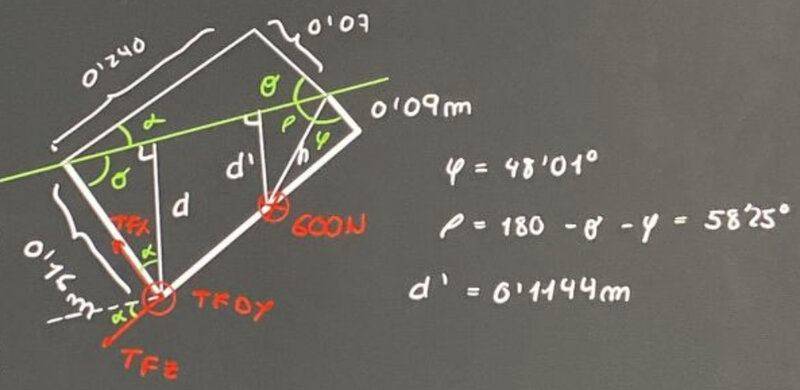 0'240
0'07
θ
α
0'09m
ρ
φ
σ
d'
h
φ = 48'01°
d
600N
TFX
ρ = 180 - θ - φ = 58'25°
α
0'16m
d' = 0'1144m
TFDY
α
TFZ